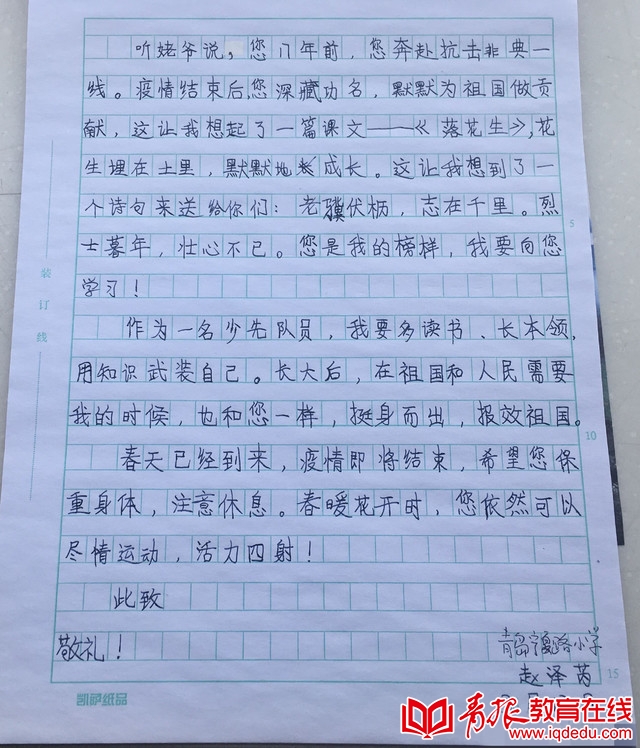 听姥爷说，您17年前，您奔赴抗击非典一
线。疫情结束后，您深藏功名，默默为祖国做贡
献，这让我想起了一篇课文——《落花生》，花
生埋在土里，默默地长成长。这让我想到了一
个诗句来送给你们：老骥伏枥，志在千里。烈
士暮年，壮心不已。您是我的榜样，我要向您
学习！
作为一名少先队员，我要多读书、长本领，
用知识武装自己。长大后，在祖国和人民需要
我的时候，也和您一样，挺身而出，报效祖国。
春天已经到来，疫情即将结束，希望您保
重身体，注意休息。春暖花开时，您依然可以
尽情运动，活力四射！
此致
敬礼！
青岛宁夏路小学
赵泽芮
装订线
5
10
15
凯萨纸品
青报教育在线
www.iqdedu.com